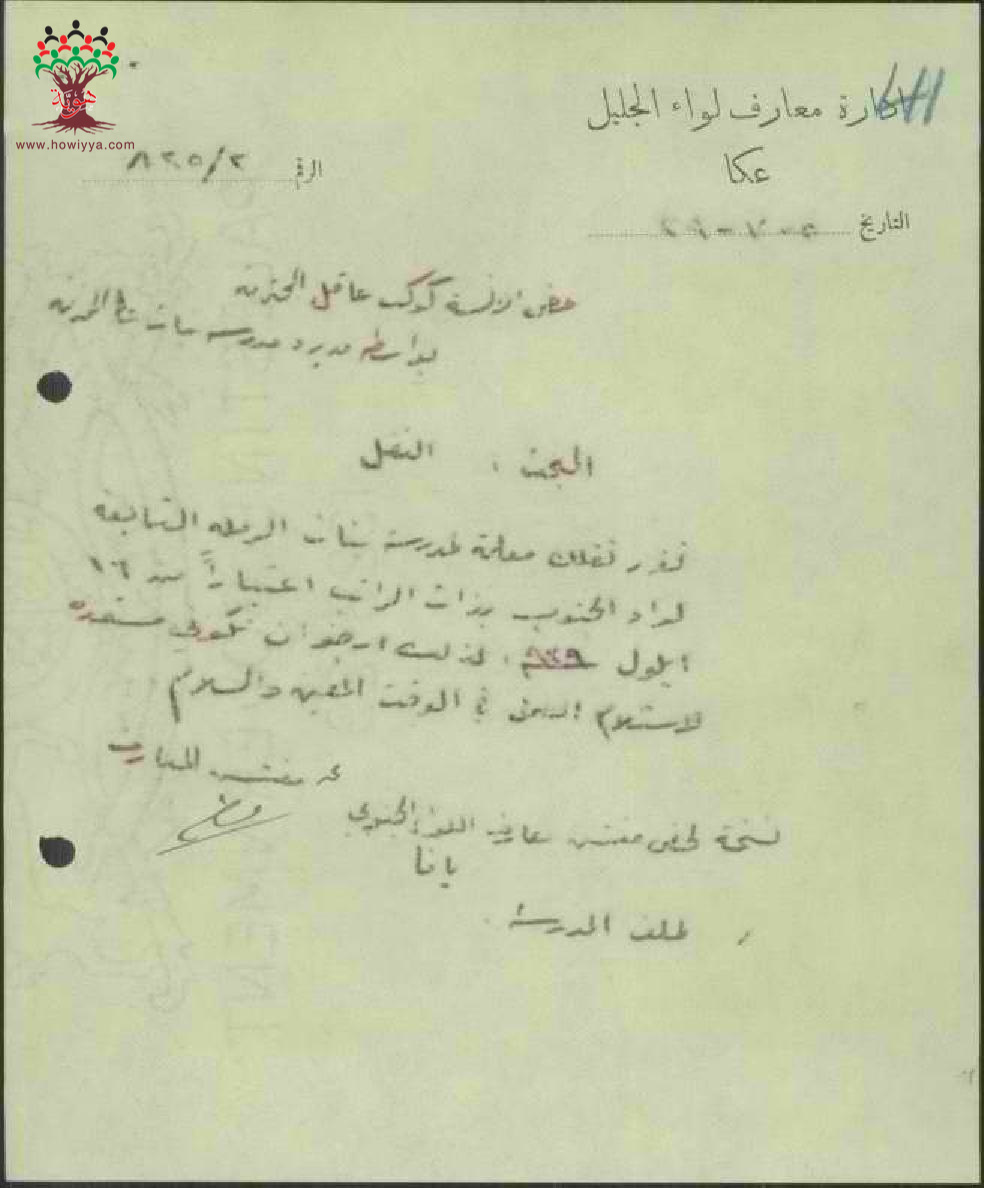 هوية
www.howiyya.com
ادارة معارف لواء الجليل
عكا
الرقم ٨٢٥/٢
التاريخ
حضرة الانسة كوكب عاقل
بواسطة مديرة مدرسة بنات
البحث : النقل
نقرر نقلك معلمة لمدرسة بنات الرملة التابعة
لواء الجنوب بذات الراتب اعتباراً من ١٦
ايلول ٩٣٩ ، لذلك ارجو ان تكوني مستعدة
لاستلام العمل في الوقت المعين والسلام
مفتش المعارف
نسخة لحضرة مفتش معارف اللواء الجنوبي
يافا
لملف المدرسة